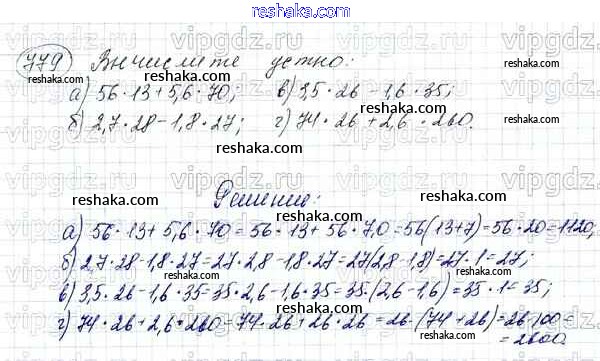 reshaka.com
779 Вычислите устно:
а) 56·13+5,6·70; в) 3,5·26-1,6·35;
б) 2,7·28-1,8·27; г) 74·26+2,6·260.
Решение:
а) 56·13+5,6·70=56·13+56·7,0=56(13+7)=56·20=1120;
б) 2,7·28-1,8·27=27·2,8-1,8·27=27(2,8-1,8)=27·1=27;
в) 3,5·26-1,6·35=35·2,6-1,6·35=35·(2,6-1,6)=35·1=35;
г) 74·26+2,6·260=74·26+26·26=26·(74+26)=26·100=
=2600.